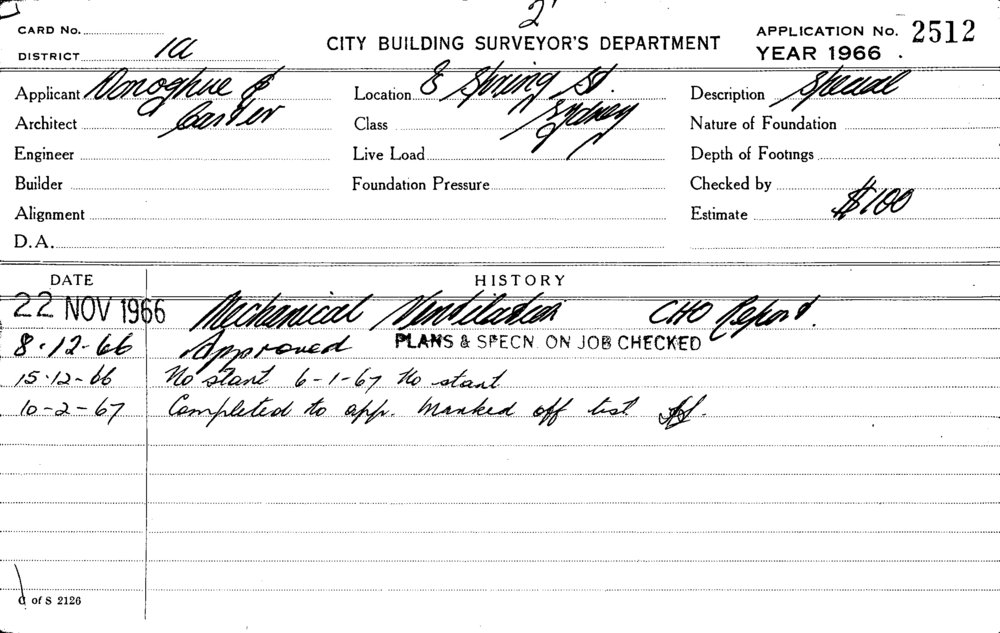 2
CARD No. CITY BUILDING SURVEYOR'S DEPARTMENT APPLICATION No. 2512
DISTRICT 1a YEAR 1966
Applicant Donoghue & Location 8 Spring St. Description Special
Architect Carter Class Sydney Nature of Foundation
Engineer Live Load Depth of Footings
Builder Foundation Pressure Checked by
Alignment Estimate $100
D.A.
DATE HISTORY
22 NOV 1966 Mechanical Ventilation CHO Report.
8.12.66 Approved PLANS & SPECN. ON JOB CHECKED
15.12.66 No start 6-1-67 No start
10-2-67 Completed to app. Marked off list
C of S 2126